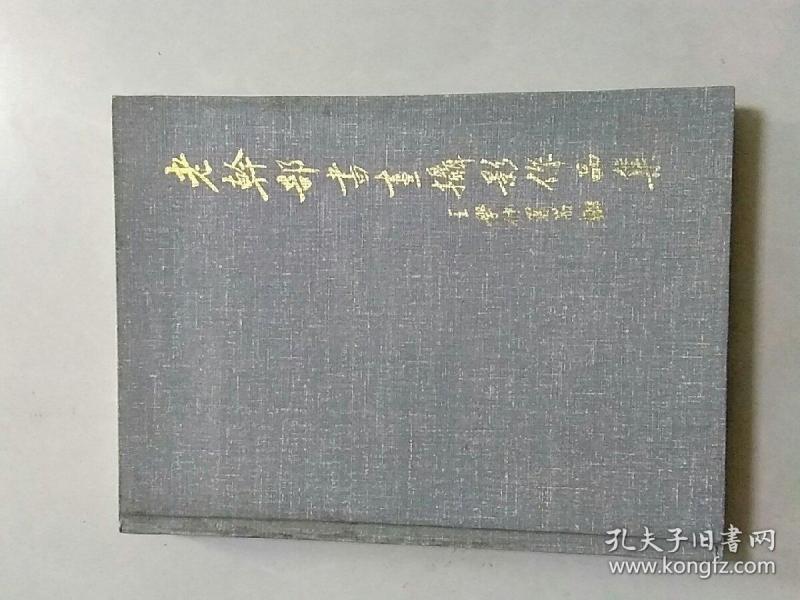 老幹部書畫攝影作品集
孔夫子旧書网
www.kongfz.com